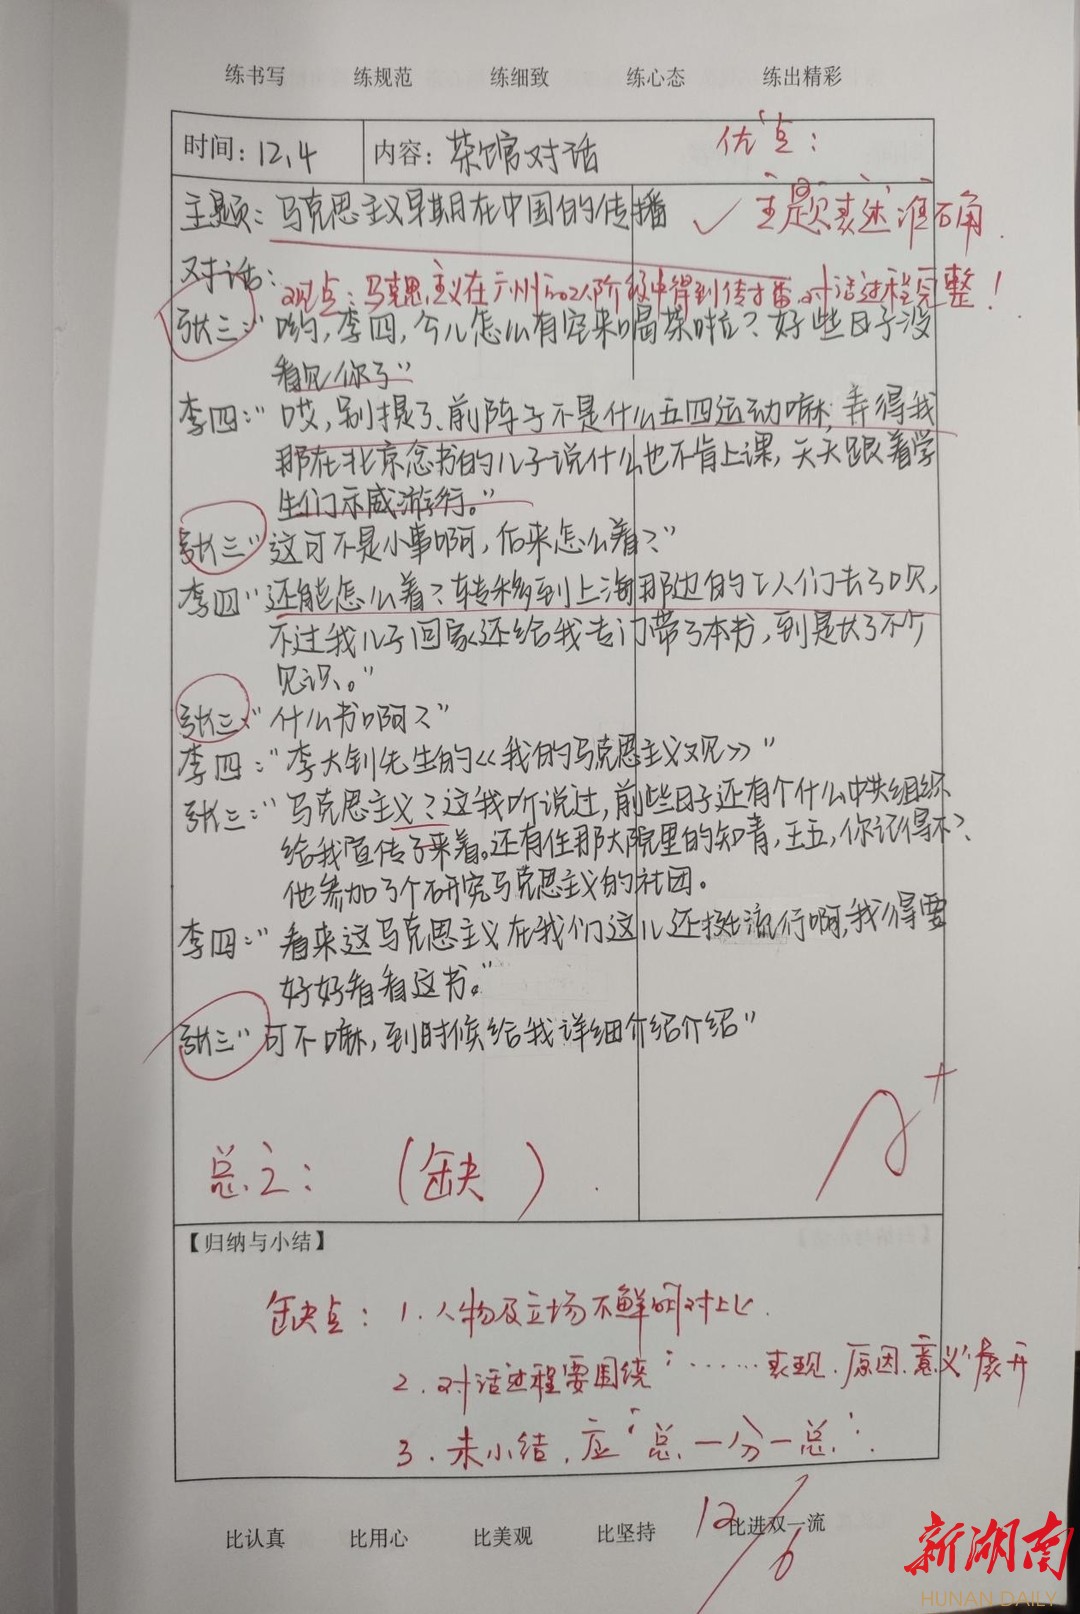 练书写 练规范 练细致 练心态 练出精彩
时间:12.4 内容:茶馆对话 优点:
主题:马克思主义早期在中国的传播 ✓主题表述准确.
对话:
观点:马克思主义在广州 阶段中得到传播,对话过程完整!
张三:“哟,李四,今儿怎么有空来喝茶啦?好些日子没
看见你了”
李四:“哎,别提了、前阵子不是什么五四运动嘛,弄得我
那在北京念书的儿子说什么也不肯上课,天天跟着学
生们示威游行。”
张三:“这可不是小事啊,后来怎么着?”
李四“还能怎么着?转移到上海那边的工人们去了呗,
不过我儿子回家还给我专门带了本书,到是长了不少
见识。”
张三:“什么书啊?”
李四:“李大钊先生的《我的马克思主义观》”
张三:“马克思主义?这我听说过,前些日子还有个什么中共组织
给我宣传了来着。还有住那大院里的知青,王五,你记得不?
他参加了个研究马克思主义的社团。
李四:“看来这马克思主义在我们这儿还挺流行啊,我得要
好好看看这书。”
张三“可不嘛,到时候给我详细介绍介绍”
A+
总之:(缺)
【归纳与小结】
缺点:1.人物及立场不鲜明对比.
2.对话过程要围绕“……表现.原因.意义”展开
3.未小结,应“总一分一总”.
12/6
比认真 比用心 比美观 比坚持 比进双一流
新湖南
HUNAN DAILY